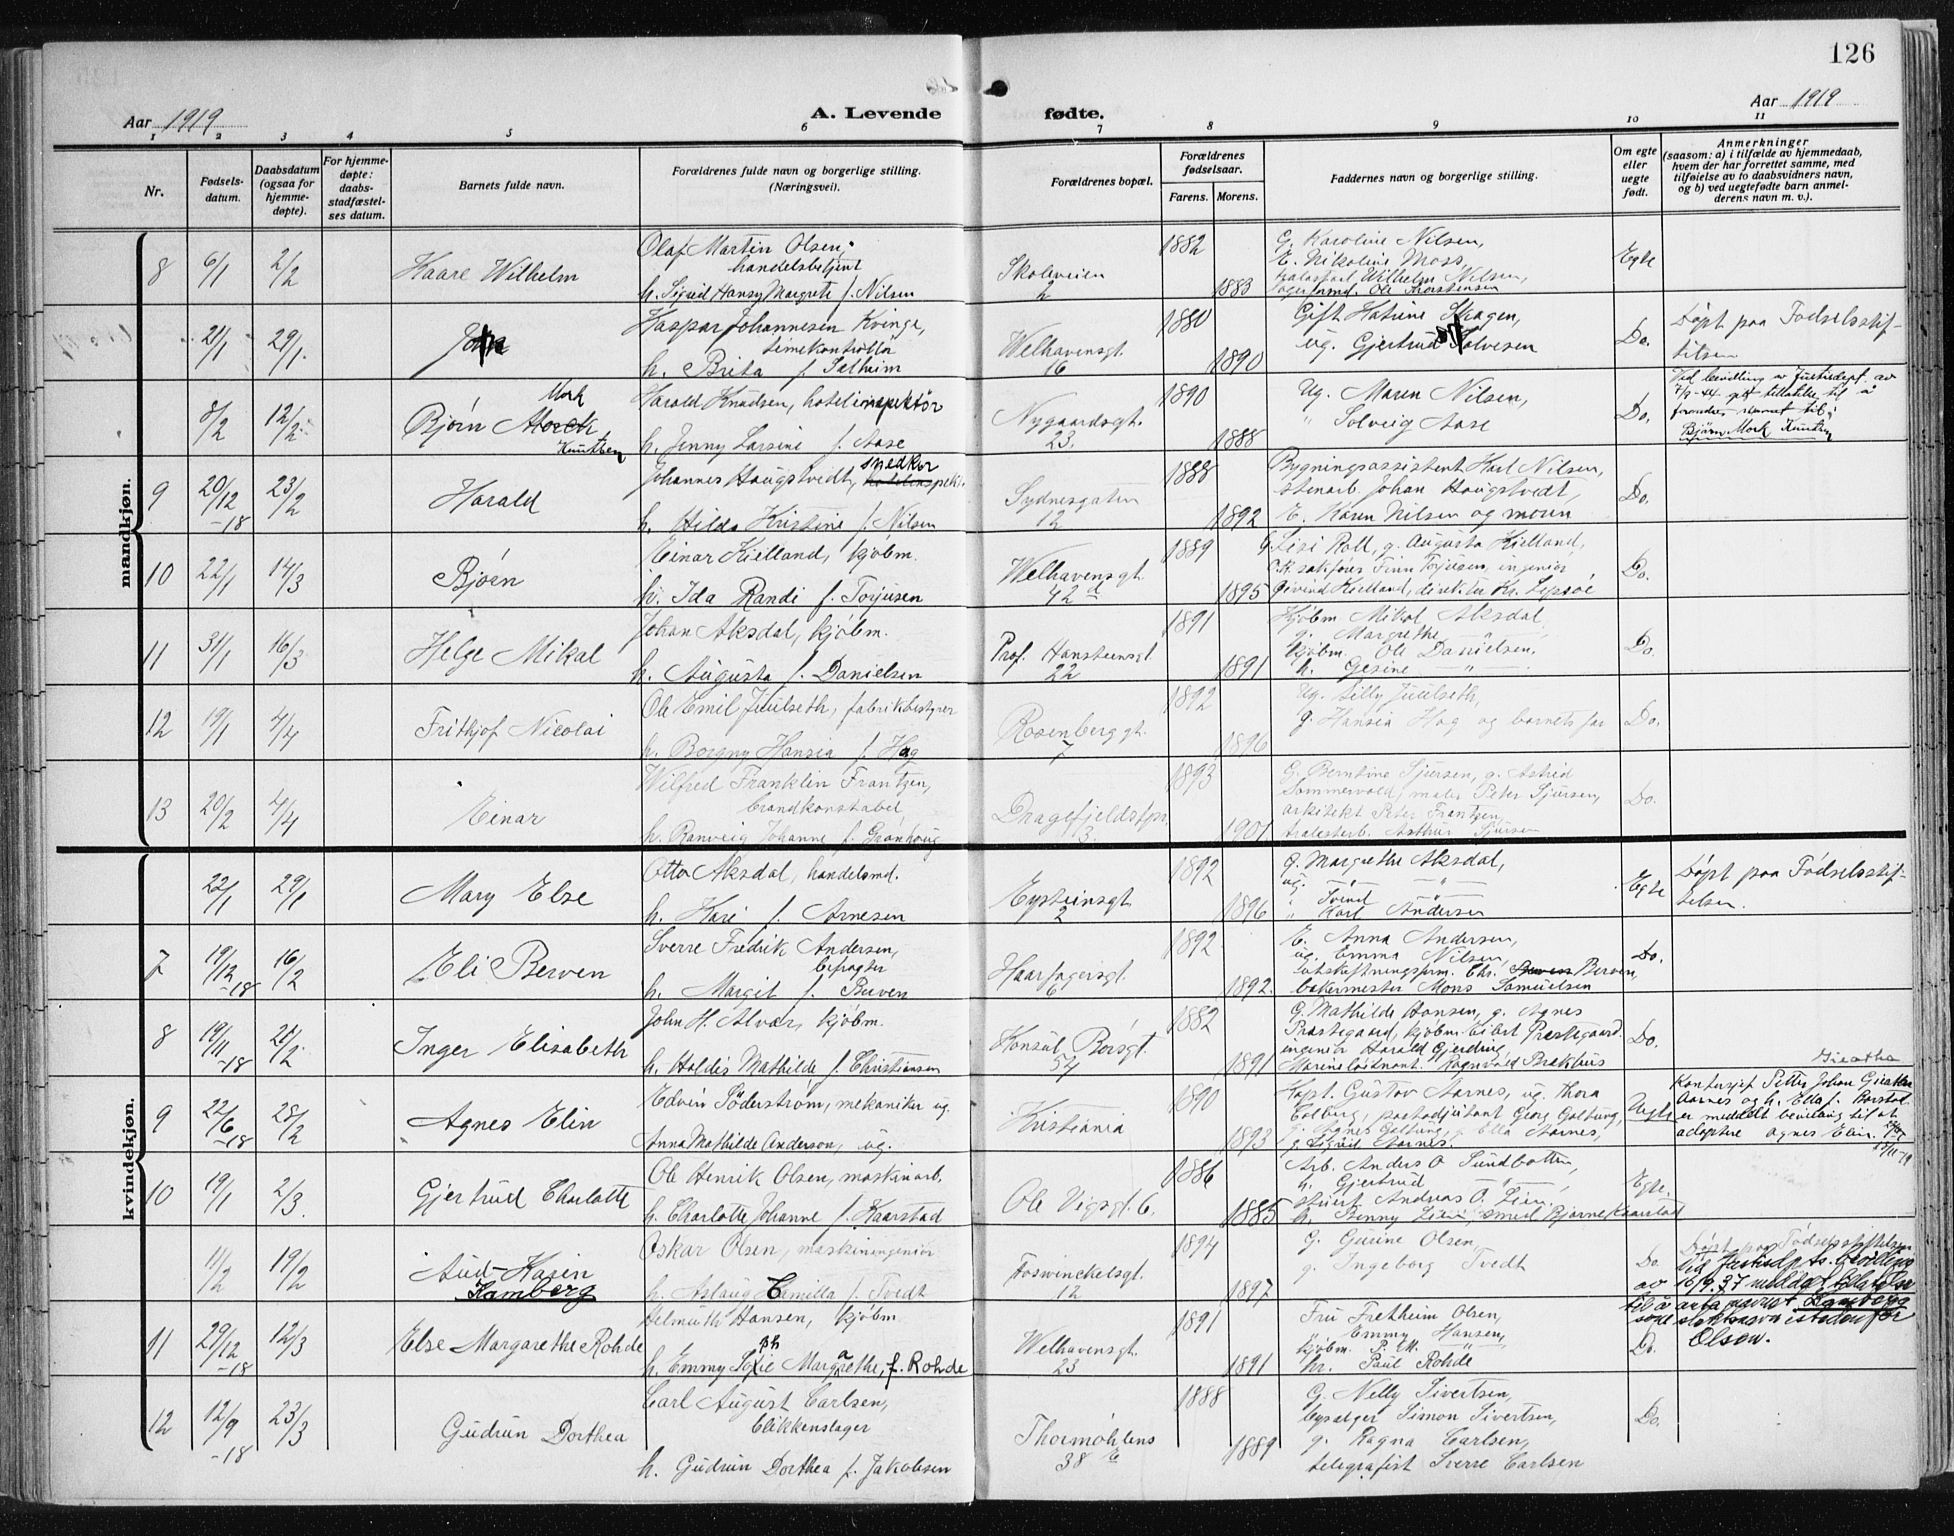 126
Aar 1919
A. Levende fødte.
Aar 1919
1 2 3 4 5 6 7 8 9 10 11
Nr.
Fødsels-
datum.
Daabsdatum
(ogsaa for
hjemme-
døpte).
For hjemme-
døpte:
daabs-
stadfæstel-
ses datum.
Barnets fulde navn.
Forældrenes fulde navn og borgerlige stilling.
(Næringsvei).
Forældrenes bopæl.
Forældrenes
fødselsaar.
Farens. Morens.
Faddernes navn og borgerlige stilling.
Om egte
eller
uegte
født.
Anmerkninger
(saasom: a) i tilfælde av hjemmedaab,
hvem der har forrettet samme, med
tilføielse av to daabsvidners navn,
og b) ved uegtefødte barn anmel-
derens navn m. v.).
mandkjøn.
8 6/1 2/2 Kaare Wilhelm
Olaf Martin Olsen,
handelsbetjent
h. Sigrid Hansy Margrete f. Nilsen
Skoleveien
2
1882
1883
G. Karoline Nilsen,
E. Nikoline Moss,
Wilhelm Nilsen,
Ole Thorstensen
Egte
21/1 29/1
Kaspar Johannesen Kvinge,
timekontrollør
h. Brita f. Selheim
Welhavensgt.
16
1880
1890
Gift Katrine Skagen,
ug. Gjertrud Solvesen
Do.
Døpt paa Fødselsstif-
telsen
8/2 12/2 Bjørn Morck
Mork
Knutzen
Harald Knudsen, hotelinspektør
h. Jenny Larsine f. Aase
Nygaardsgt.
23.
1890
1888
Ug. Maren Nilsen,
" Solveig Aase
Do.
Ved bevilling av Justisdept. av
7/9-44 gitt tillatelse til å
forandre navnet til:
Bjørn Mork Knutzen
9 20/12-18 23/2 Harald
Johannes Haugstvedt, snedker
h. Hilda Kristine f. Nilsen
Sydnesgaten
12
1888
1892
Bygningsassistent Karl Nilsen,
stenarb. Johan Haugstvedt,
E. Karen Nilsen og moren
Do.
10 22/1 14/3 Bjørn
Einar Kielland, kjøbm.
h. Ida Randi f. Torjusen
Welhavensgt.
42 d
1889
1895
G. Sisi Roll, g. Augusta Kielland,
O.R. sakfører Finn Torjusen, ingeniør
Eivind Kielland, direktør Kr. Lepsøe
Do.
11 31/1 16/3 Helge Mikal
Johan Aksdal, kjøbm.
h. Augusta f. Danielsen
Prof. Hansteensgt.
22
1891
1891
Kjøbm Mikal Aksdal,
g. Margrethe — " —
kjøbm. Ole Danielsen,
h. Gesine — " —
Do.
12 19/1 4/4 Frithjof Nicolai
Ole Emil Juulseth, fabrikbestyrer
h. Borgny Hansia f. Hag
Rosenberggt.
7
1892
1896
Ug. Lilly Juulseth,
g. Hansia Hag og barnets far
Do.
13 20/2 4/4 Einar
Wilfred Franklin Frantzen,
brandkonstabel
h. Ranveig Johanne f. Grønhoug
Dragefjeldstpr.
3.
1893
1901
G. Berntine Sjursen, g. Astrid
Sommervold, maler Peter Sjursen,
arkitekt Peter Frantzen,
Arthur Sjursen
Do.
kvindekjøn.
22/1 29/1 Mary Else
Otto Aksdal, handelsmd.
h. Kari f. Arnesen
Eysteinsgt.
2
1892
1896
G. Margrethe Aksdal,
ug. Svend — " —
" Karl Andersen
Egte
Døpt paa Fødselsstif-
telsen.
7 19/12-18 16/2 Eli Berven
Sverre Fredrik Andersen,
befragter
h. Margit f. Berven
Haarfagersgt.
6
1892
1892.
E. Anna Andersen,
ug. Emma Nilsen,
Chr. Berven,
bakermester Mons Samuelsen
Do.
8 19/11-18 21/2 Inger Elisabeth
John H. Alvær, kjøbm.
h. Holdis Mathilde f. Christiansen
Konsul Børsgt.
54
1882
1891
G. Mathilde Hansen, g. Agnes
Præstegaard, kjøbm. Eilert Præstegaard.
ingeniør Harald Gjerding
Marineløitnant Ragnvald Brekhus
Do.
9 22/6-18 28/2 Agnes Elin
Edvin Søderstrøm, mekaniker ug.
Anna Mathilde Anderson, ug.
Kristiania
1890
1893
Kapt. Gustav Aarnes, ug. Thora
Colberg, postadjutant Georg Galtung,
g. Agnes Galtung, g. Ella Aarnes,
g. Sigrid Aarnes.
Uegte
Giæther
Kontorsjef Petter Johan Giæther
Aarnes og h. Ella f.
er meddelt bevilling til at
adoptere Agnes Elin.
10 19/1 2/3. Gjertrud Charlotte
Ole Henrik Olsen, maskinarb.
h. Charlotte Johanne f. Kaarstad
Ole Vigsgt. 6.
1886
1885
Arb. Anders O. Sundbotten,
h. Gjertrud — " —
stuert Andreas O. Lien,
h. Benny Lien, smed Bjarne Kaarstad
Egte.
11/2 19/2 Aud-Karin
Kamberg
Oskar Olsen, maskiningeniør
h. Aslaug Camilla f. Tvedt
Foswinckelsgt.
12
1894
1897
G. Gurine Olsen
g. Ingeborg Tvedt
Do.
Døpt paa Fødselsstiftelsen
Ved Justisdpts. bevilling
av 16/9.37 meddelt tillatelse
til å anta navnet Kamberg
som slektsnavn istedenfor
Olsen.
11 29/12-18 12/3 Else Margarethe Rohde
Helmuth Hansen, kjøbm.
h. Emmy Sofie Margarethe, f. Rohde
ph
a
Welhavensgt.
23
1891
1891
Fru Fretheim Olsen,
" Emmy Hansen,
kjøbm. P. M. — " —
hr. Paul Rohde
Do.
12 12/9-18 23/3 Gudrun Dorthea
Carl August Carlsen,
blikkenslager
h. Gudrun Dorthea f. Jakobsen
Thormøhlens
38 c
1888
1889
G. Nelly Sivertsen,
bysælger Simon Sivertsen,
g. Ragna Carlsen,
telegrafist Sverre Carlsen
Do.